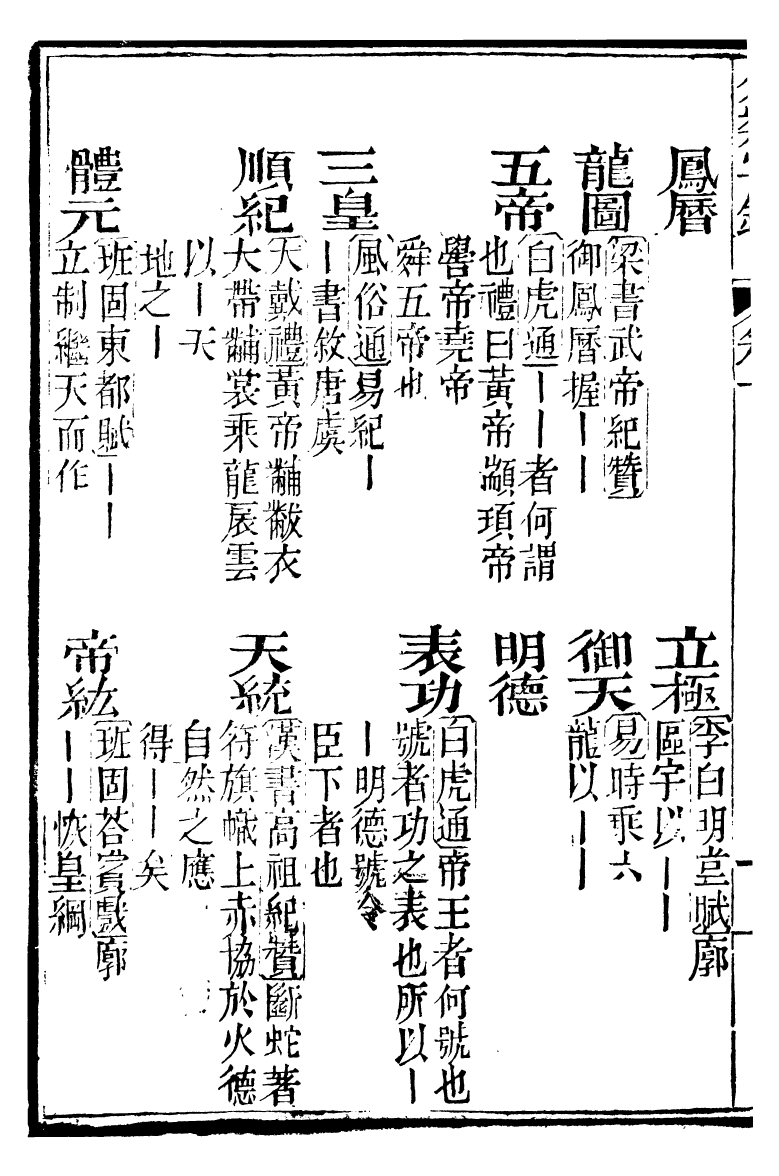 鳳曆
龍圖
梁書武帝紀贊
御鳳曆握||
五帝
白虎通||者何謂
也禮曰黃帝顓頊帝
嚳帝堯帝
舜五帝也
三皇
風俗通易紀|
|書敘唐虞
順紀
大戴禮黃帝黼黻衣
大帶黼裳乘龍扆雲
以|天
地之|
體元
班固東都賦||
立制繼天而作
立極
李白明堂賦廓
區宇以||
御天
易時乘六
龍以||
明德
表功
白虎通帝王者何號也
號者功之表也所以|
|明德號令
臣下者也
天統
漢書高祖紀贊斷蛇著
符旗幟上赤協於火德
自然之應
得||矣
帝紘
班固荅賓戲廓
||恢皇綱